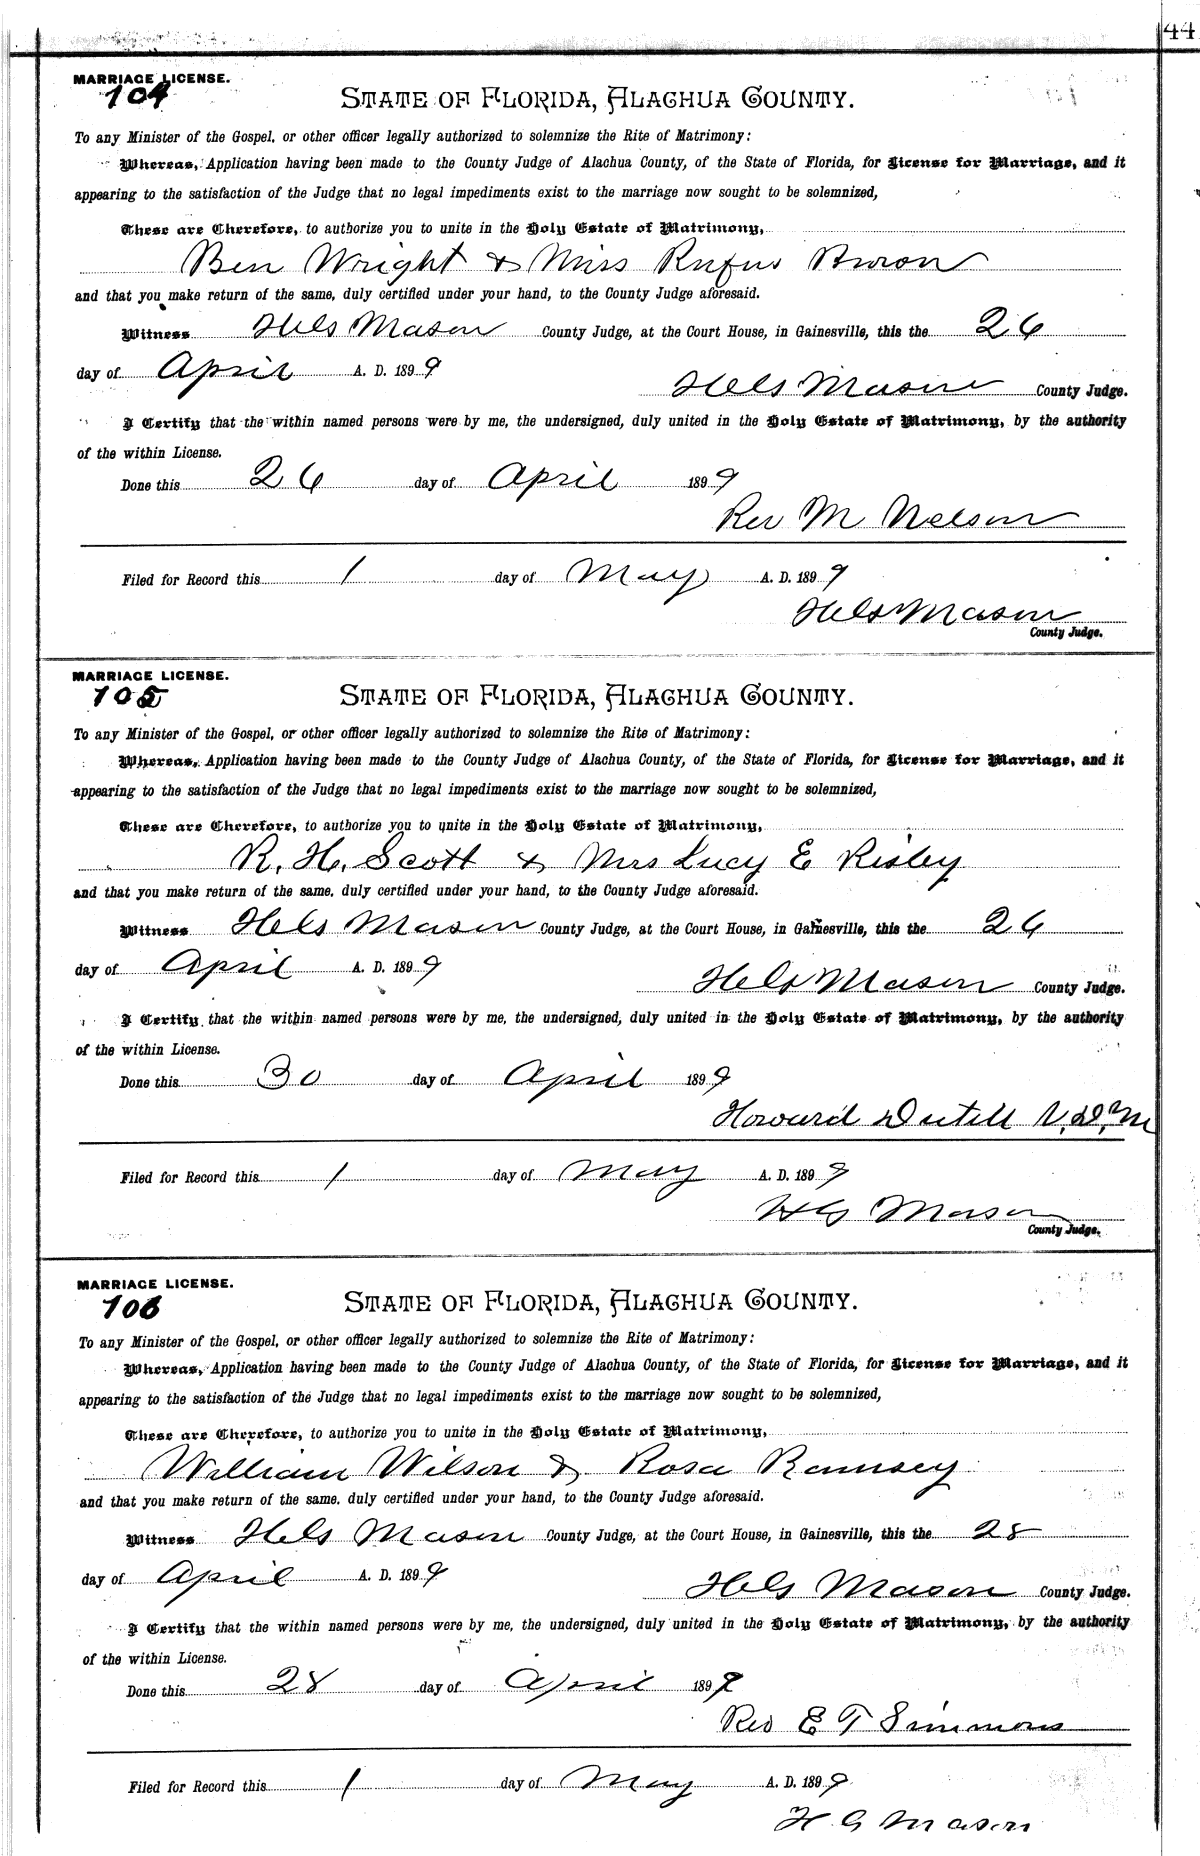 44
MARRIAGE LICENSE.
104
STATE OF FLORIDA, ALACHUA COUNTY.
To any Minister of the Gospel, or other officer legally authorized to solemnize the Rite of Matrimony:
Whereas, Application having been made to the County Judge of Alachua County, of the State of Florida, for License for Marriage, and it
appearing to the satisfaction of the Judge that no legal impediments exist to the marriage now sought to be solemnized,
These are Therefore, to authorize you to unite in the Holy Estate of Matrimony,
Ben Wright & Miss Rufus
and that you make return of the same, duly certified under your hand, to the County Judge aforesaid.
Witness Mason County Judge, at the Court House, in Gainesville, this the 26
day of April A. D. 1899
Mason County Judge.
I Certify that the within named persons were by me, the undersigned, duly united in the Holy Estate of Matrimony, by the authority
of the within License.
Done this 26 day of April 1899
Rev M Nelson
Filed for Record this 1 day of May A. D. 1899
Mason
County Judge.
MARRIAGE LICENSE.
105
STATE OF FLORIDA, ALACHUA COUNTY.
To any Minister of the Gospel, or other officer legally authorized to solemnize the Rite of Matrimony:
Whereas, Application having been made to the County Judge of Alachua County, of the State of Florida, for License for Marriage, and it
appearing to the satisfaction of the Judge that no legal impediments exist to the marriage now sought to be solemnized,
These are Therefore, to authorize you to unite in the Holy Estate of Matrimony,
R. H. Scott & Mrs Lucy E Risley
and that you make return of the same, duly certified under your hand, to the County Judge aforesaid.
Witness Mason County Judge, at the Court House, in Gainesville, this the 26
day of April A. D. 1899
Mason County Judge.
I Certify that the within named persons were by me, the undersigned, duly united in the Holy Estate of Matrimony, by the authority
of the within License.
Done this 30 day of April 1899
Howard V.D.M
Filed for Record this 1 day of May A. D. 1899
Mason
County Judge.
MARRIAGE LICENSE.
106
STATE OF FLORIDA, ALACHUA COUNTY.
To any Minister of the Gospel, or other officer legally authorized to solemnize the Rite of Matrimony:
Whereas, Application having been made to the County Judge of Alachua County, of the State of Florida, for License for Marriage, and it
appearing to the satisfaction of the Judge that no legal impediments exist to the marriage now sought to be solemnized,
These are Therefore, to authorize you to unite in the Holy Estate of Matrimony,
William Wilson & Rosa Ramsey
and that you make return of the same, duly certified under your hand, to the County Judge aforesaid.
Witness HG Mason County Judge, at the Court House, in Gainesville, this the 28
day of April A. D. 1899
HG Mason County Judge.
I Certify that the within named persons were by me, the undersigned, duly united in the Holy Estate of Matrimony, by the authority
of the within License.
Done this 28 day of April 1899
Rev E T Simmons
Filed for Record this 1 day of May A. D. 1899
H G Mason